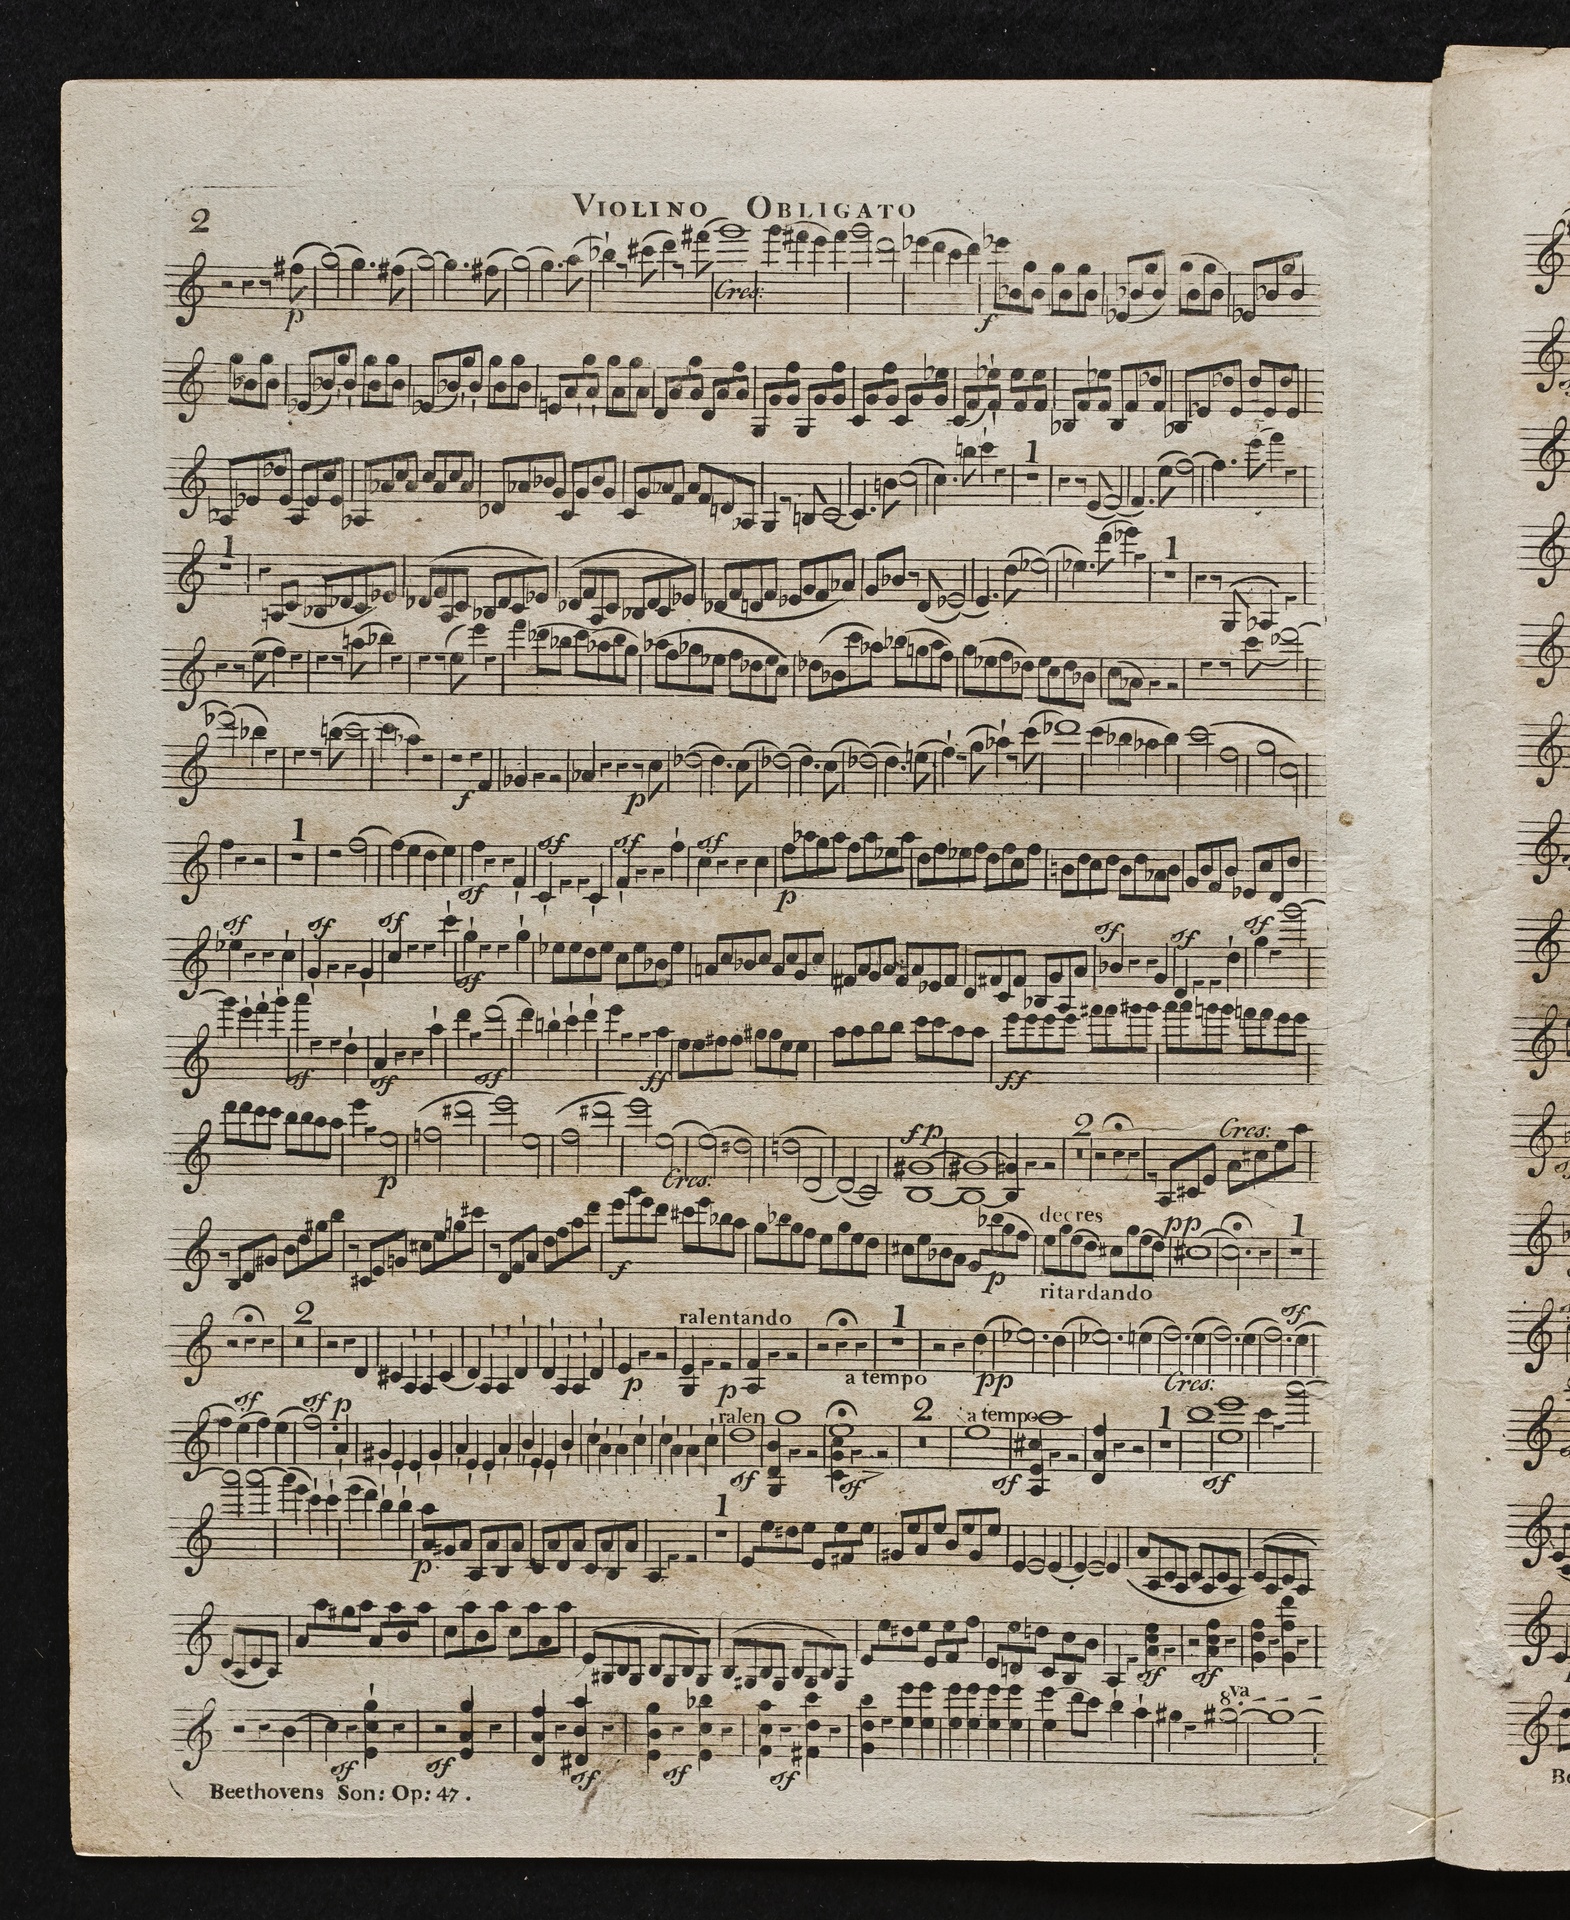 2
VIOLINO OBLIGATO
p
Cres:
f
1
1
1
f
p
1
sf
sf
sf
sf
p
sf
sf
sf
sf
sf
sf
sf
sf
sf
sf
ff
ff
p
Cres:
fp
2
Cres:
f
p
decres
ritardando
pp
1
2
p
ralentando
p
a tempo
1
pp
Cres:
sf
sf
sf p
ralen
sf
sf
2
a tempo
sf
1
sf
p
1
sf
sf
sf
sf
sf
sf
sf
8va
Beethovens Son: Op: 47.